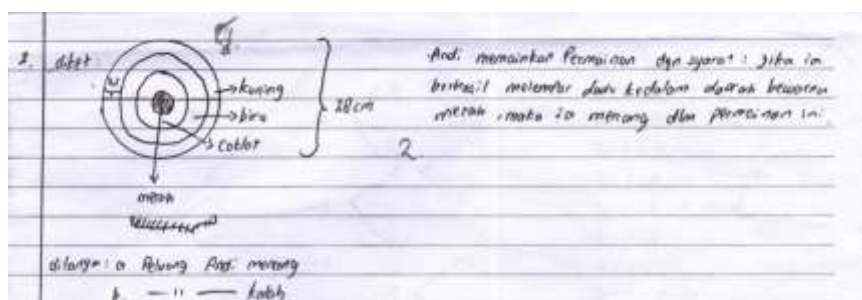 2. diket :
kuning
biru
Coklat
merah
28 cm
Andi memainkan Permainan dgn syarat : Jika ia
berhasil melempar dadu kedalam daerah bewarna
merah, maka ia menang dlm permainan ini.
2
ditanya : a Peluang Andi menang
b. — " — kalah